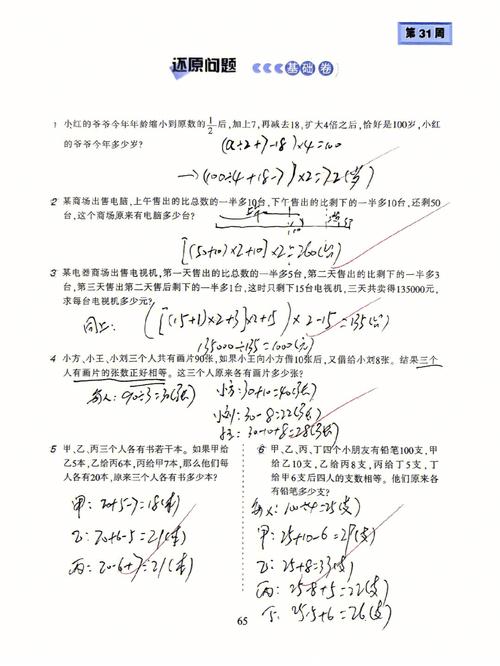 第31周
还原问题 基础卷
1 小红的爷爷今年年龄缩小到原数的1/2后,加上7,再减去18,扩大4倍之后,恰好是100岁,小红
的爷爷今年多少岁?
(a÷2+7-18)×4=100
→(100÷4+18-7)×2=72(岁)
2 某商场出售电脑,上午售出的比总数的一半多10台,下午售出的比剩下的一半多10台,还剩50
台,这个商场原来有电脑多少台?
[(50+10)×2+10]×2=260(台)
3 某电器商场出售电视机,第一天售出的比总数的一半多5台,第二天售出的比剩下的一半多3
台,第三天售出第二天售后剩下的一半多1台,这时只剩下15台电视机,三天共卖得135000元,
求每台电视机多少元?
同上: ([(15+1)×2+3]×2+5)×2-15=135(台)
135000÷135=1000(元)
4 小方、小王、小刘三个人共有画片90张,如果小王向小方借10张后,又借给小刘8张。结果三个
人有画片的张数正好相等。这三个人原来各有画片多少张?
每人:90÷3=30(张)
小方:30+10=40(张)
小刘:30-8=22(张)
小王:30-10+8=28(张)
5 甲、乙、丙三个人各有书若干本。如果甲给
乙5本,乙给丙6本,丙给甲7本,那么他们每
人各有20本,原来三个人各有书多少本?
甲:20+5-7=18(本)
乙:20+6-5=21(本)
丙:20-6+7=21(本)
6 甲、乙、丙、丁四个小朋友有铅笔100支,甲
给乙10支,乙给丙8支,丙给丁5支,丁
给甲6支后四人的支数相等。他们原来各
有铅笔多少支?
100÷4=25(支)
甲:25+10-6=29(支)
乙:25+8=33(支)
丙:25-8+5=22(支)
丁:25-5+6=26(支)
65